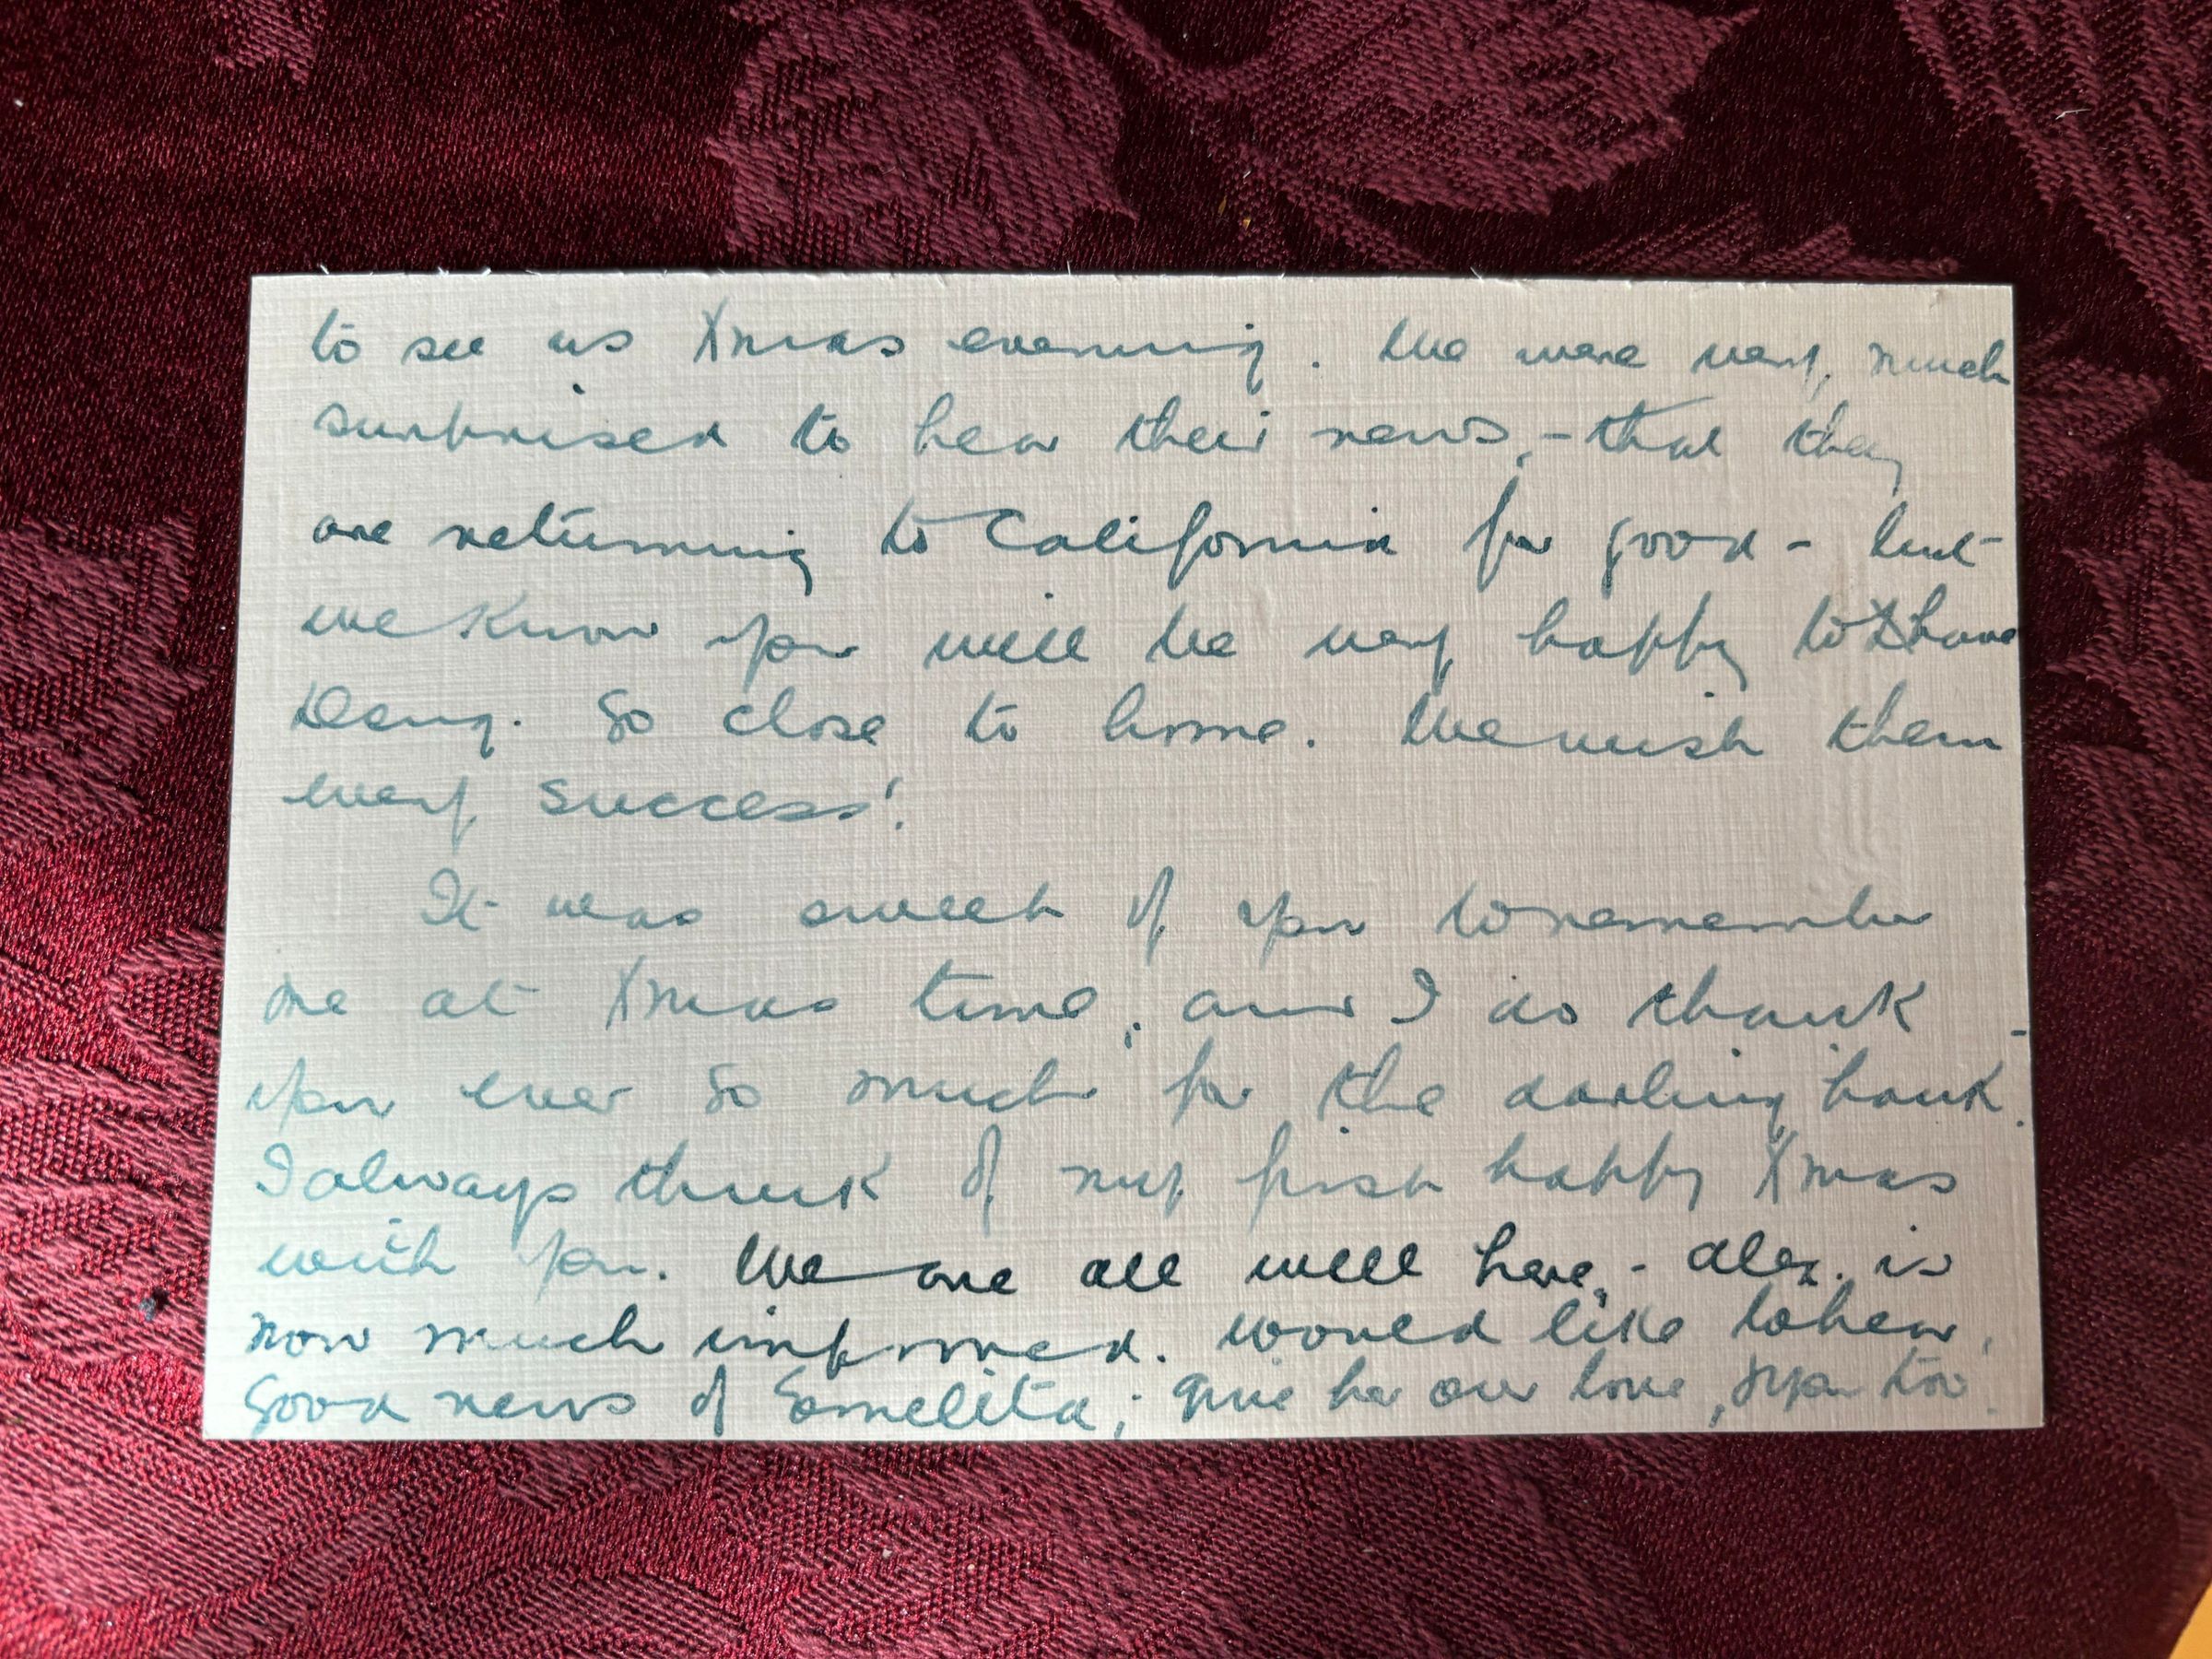 to see us Xmas evening. We were very much
surprised to hear their news, - that they
are returning to California for good - but
we know you will be very happy to have
so close to home. We wish them
every success!
It was sweet of you to remember
me at Xmas time, and I do thank
you ever so much for the darling
I always think of my first happy Xmas
with you. We are all well here, - Alex. is
now much improved. Would like to hear
good news of give her our love, & you too.